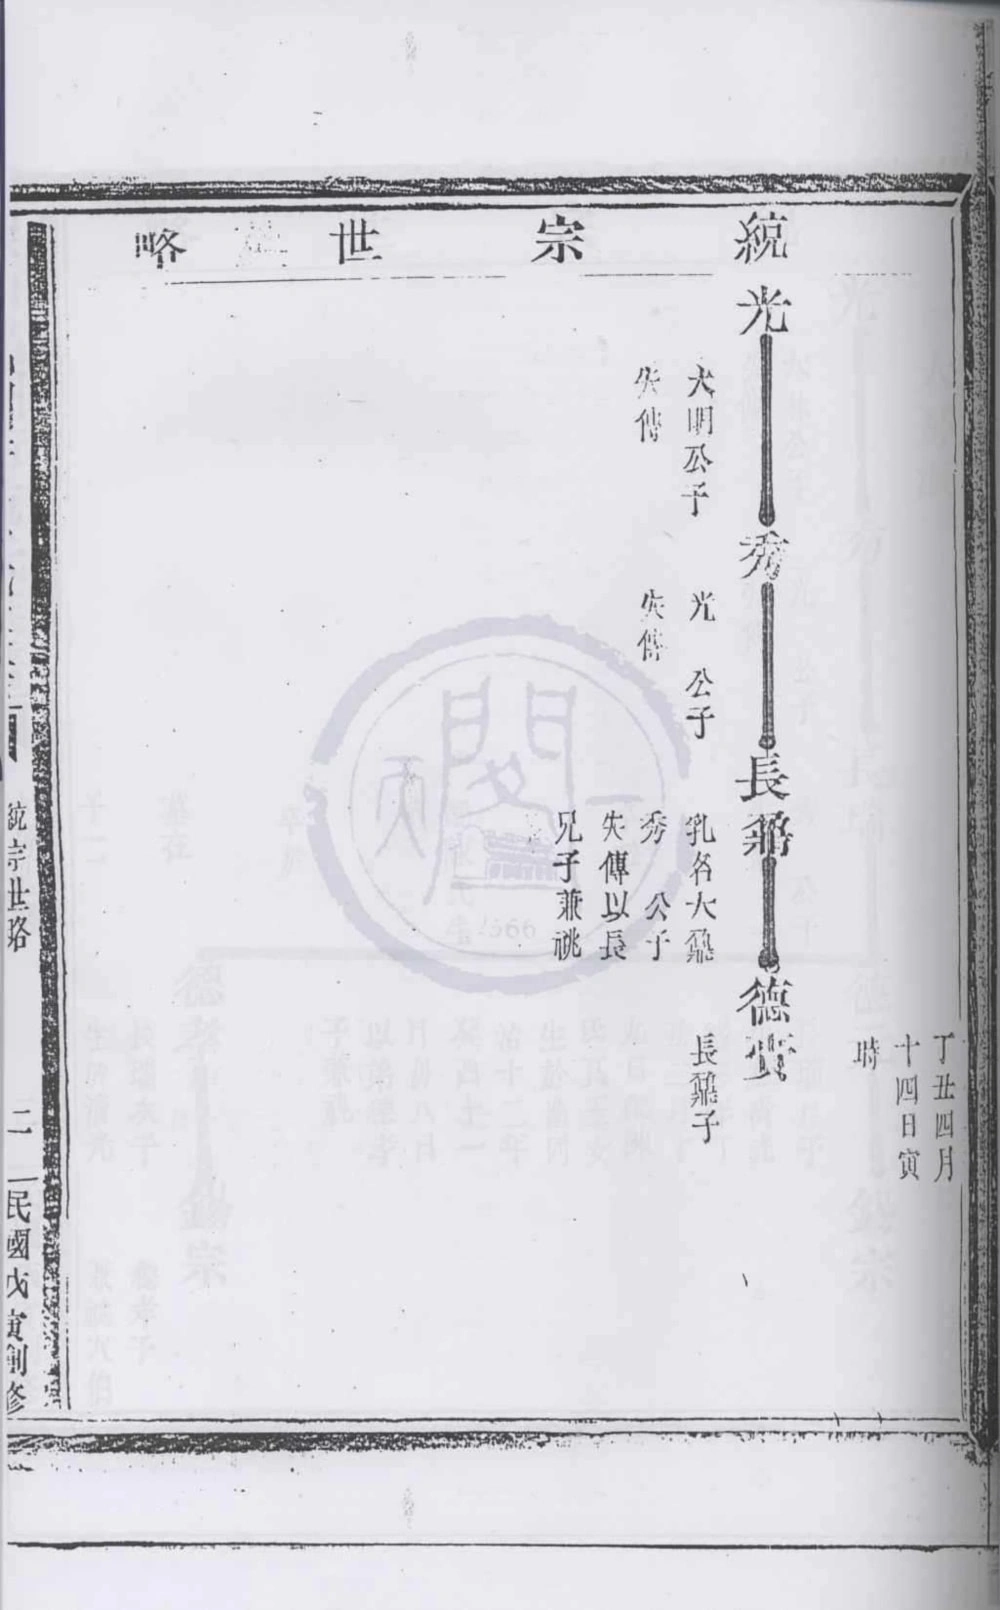 統宗世略
丁丑四月
十四日寅
時
光
秀
長鼐
德
大明公子
失傳
光公子
失傳
乳名大鼐
秀公子
失傳以長
兄子兼祧
長鼐子
統宗世略
二
民國戊寅創修
1566